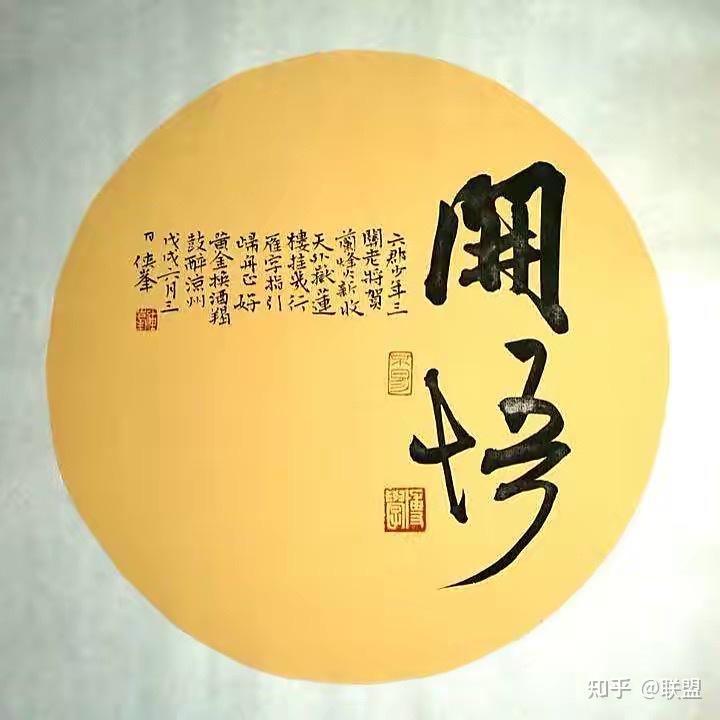 開悟
六郡少年三
關老將賀
蘭烽火新收
天外嶽蓮
樓挂幾行
雁字指引
歸舟正好
黃金換酒羯
鼓醉涼州
戊戌六月三
日俠峯
博學
知乎 @联盟